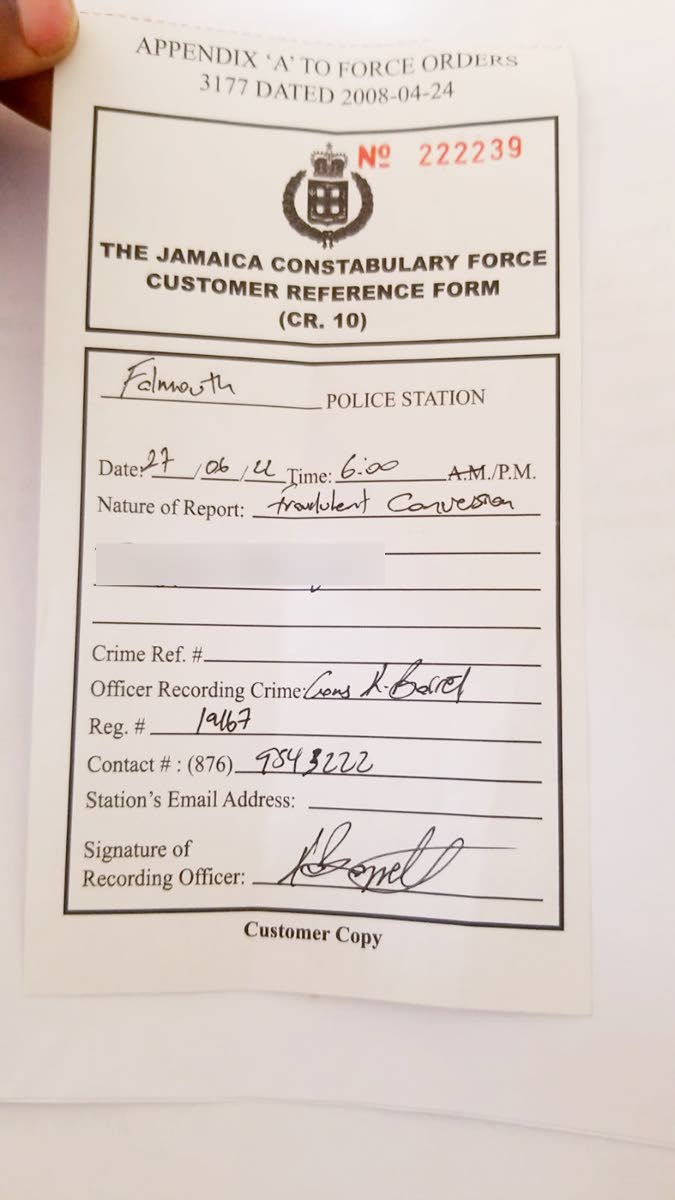 APPENDIX ‘A’ TO FORCE ORDERS
3177 DATED 2008-04-24
Nº 222239
THE JAMAICA CONSTABULARY FORCE
CUSTOMER REFERENCE FORM
(CR. 10)
Falmouth POLICE STATION
Date: 27 / 06 / 22 Time: 6:00 A.M./P.M.
Nature of Report: fraudulent Conversion
Crime Ref. #
Officer Recording Crime: Cons K.
Reg. # 19167
Contact # : (876) 9543222
Station's Email Address:
Signature of
Recording Officer:
Customer Copy